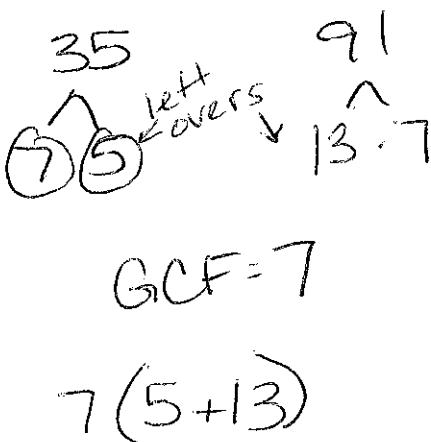 35 91
7 5 left overs 13 · 7
GCF=7
7(5+13)